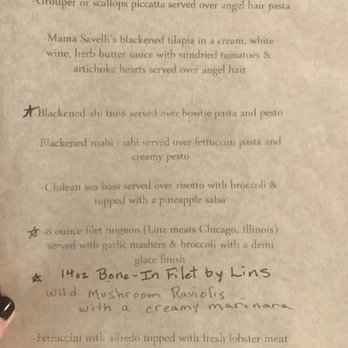 Grouper or scallops piccatta served over angel hair pasta
-Mama Savelli's blackened tilapia in a cream, white
wine, herb butter sauce with sundried tomatoes &
artichoke hearts served over angel hair
-Blackened ahi tuna served over bowtie pasta and pesto
-Blackened mahi mahi served over fettuccini pasta and
creamy pesto
-Chilean sea bass served over risotto with broccoli &
topped with a pineapple salsa
-8 ounce filet mignon (Linz meats Chicago, Illinois)
served with garlic mashers & broccoli with a demi
glace finish
14oz Bone-In Filet by Lins
wild Mushroom Raviolis
with a creamy marinara
Fettuccini with alfredo topped with fresh lobster meat